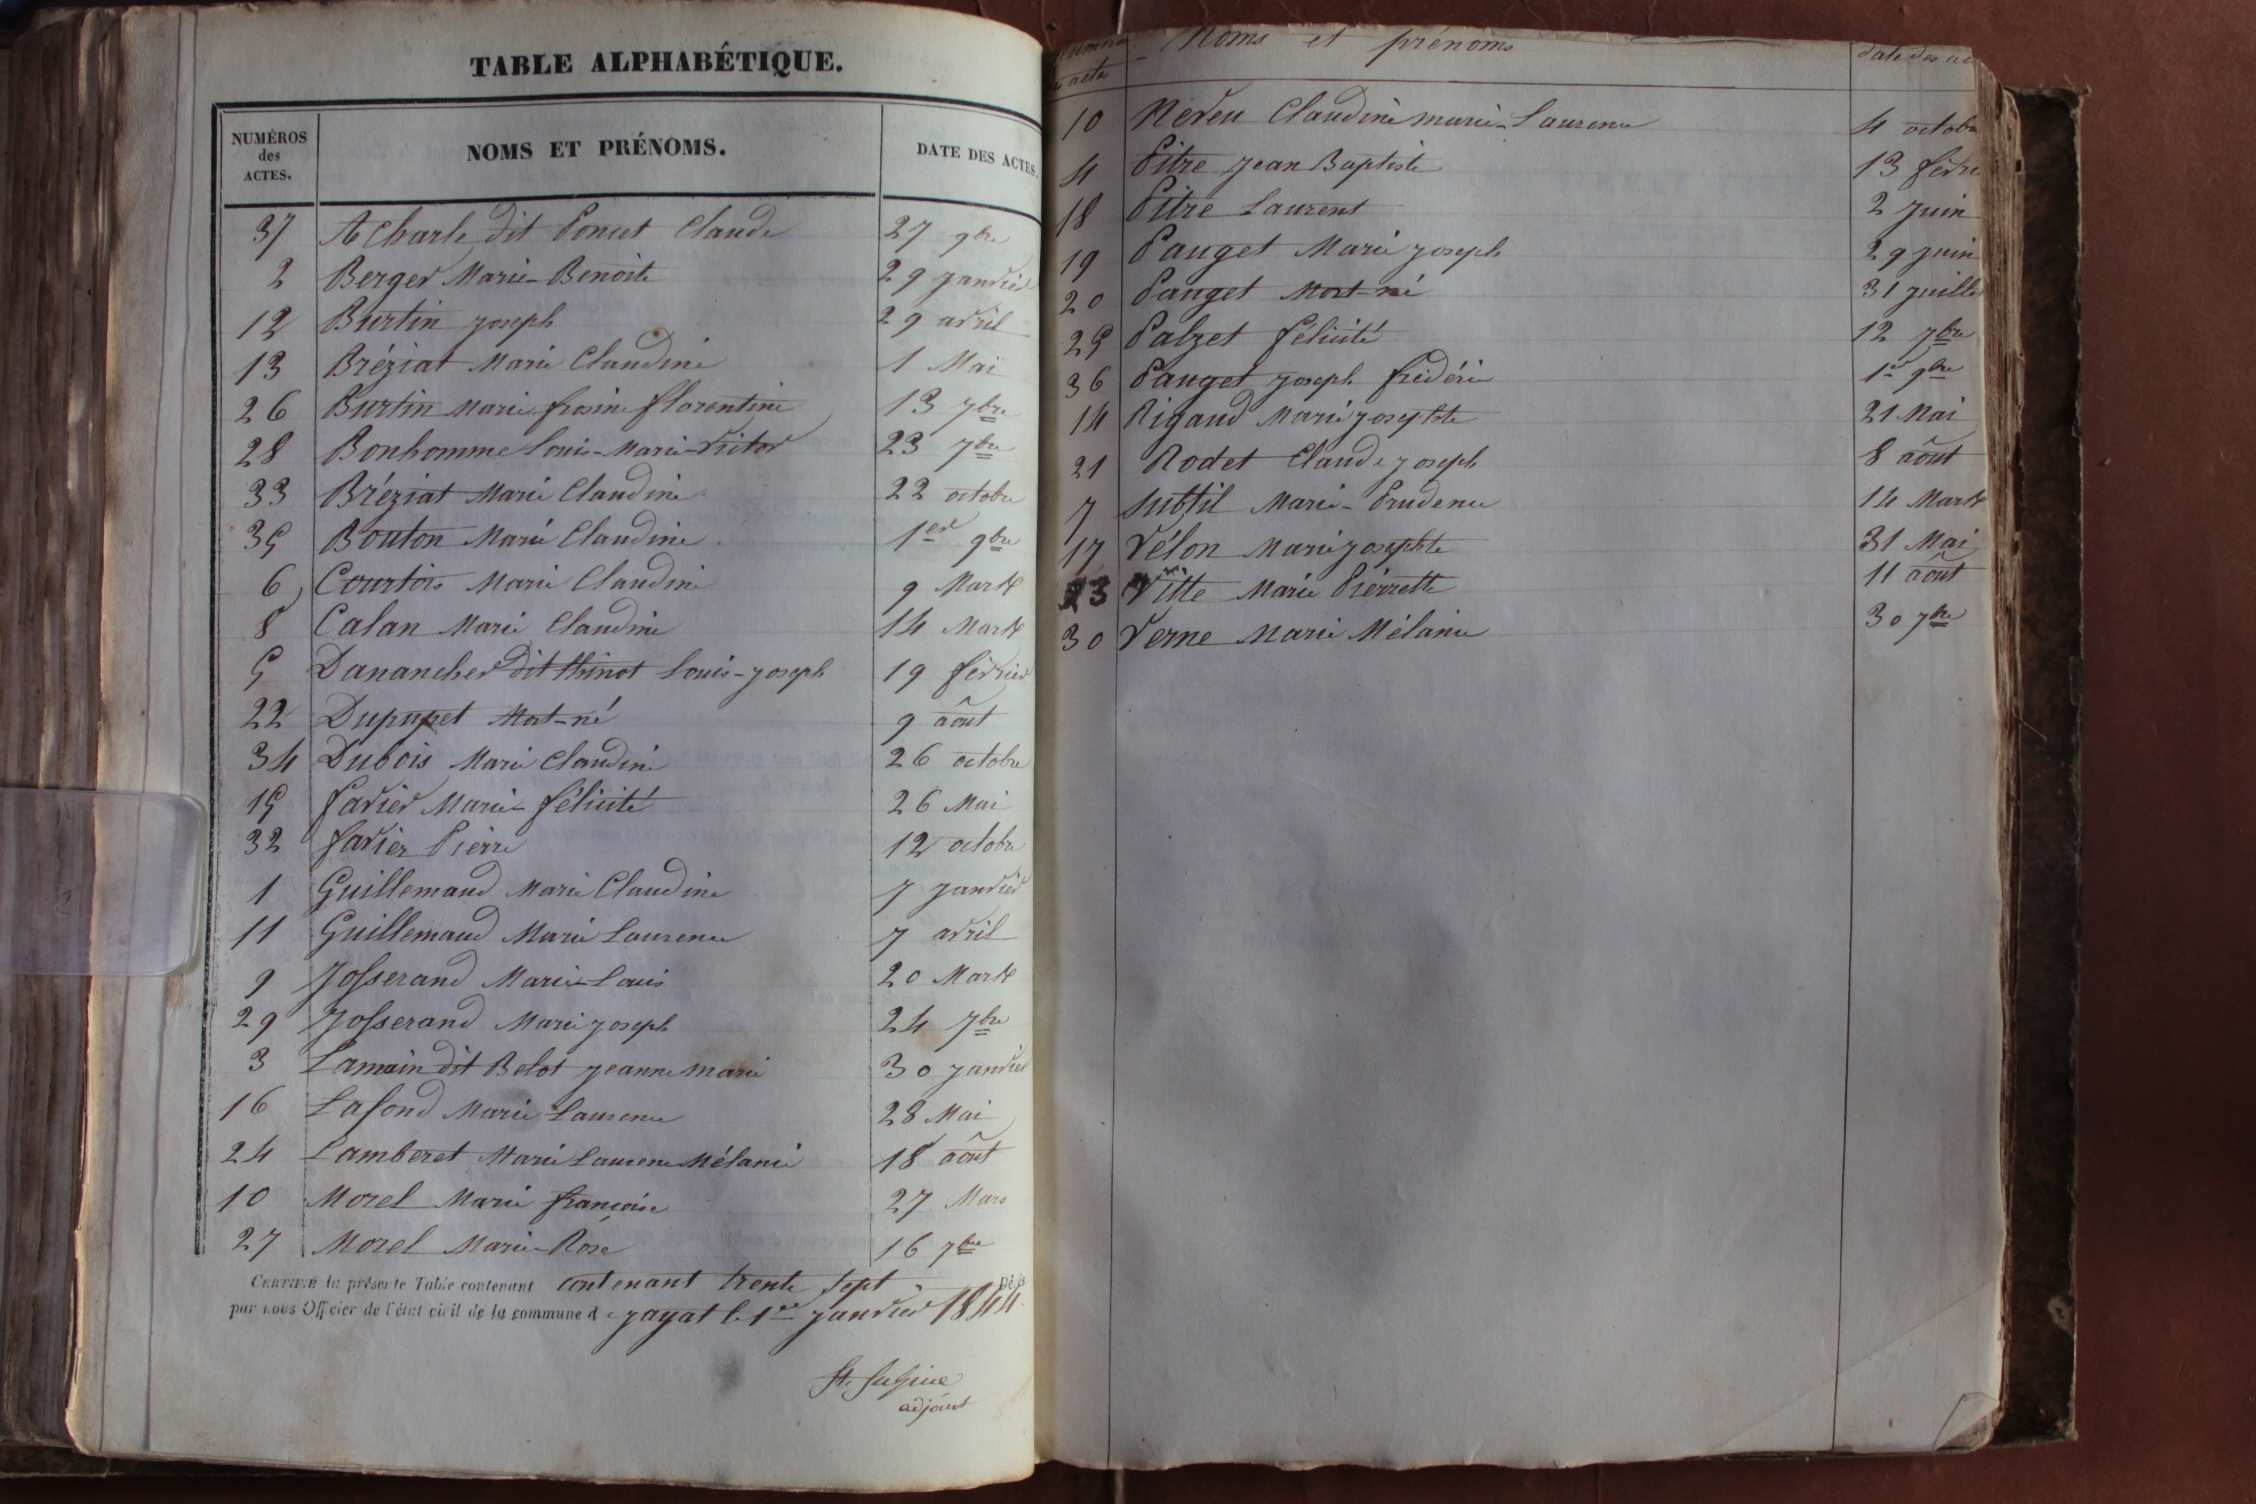 TABLE ALPHABÉTIQUE.
NUMÉROS des ACTES. NOMS ET PRÉNOMS. DATE DES ACTES.
37 Acharle dit Poncet Claude 27 9bre
2 Berger Marie-Benoite 29 janvier
12 Burtin joseph 29 avril
13 Bréziat Marie Claudine 1 Mai
26 Burtin Marie frosine florentine 13 7bre
28 Bonhomme Louis-Marie-Victor 23 7bre
33 Bréziat Marie Claudine 22 octobre
35 Bouton Marie Claudine 1er 9bre
6 Courtois Marie Claudine 9 Mars
8 Calan Marie Claudine 14 Mars
5 Danancher dit thinot Louis-joseph 19 février
22 Dupupet Mort-né 9 août
34 Dubois Marie Claudine 26 octobre
15 favier Marie félicité 26 Mai
32 favier Pierre 12 octobre
1 Guillemaud Marie Claudine 7 janvier
11 Guillemaud Marie Laurence 7 avril
9 Josserand Marie-Louis 20 Mars
29 Josserand Marie joseph 24 7bre
3 Lamain dit Belot jeanne marie 30 janvier
16 Lafond Marie Laurence 28 Mai
24 Lamberet Marie Laurence Mélanie 18 août
10 Morel Marie françoise 27 Mars
27 Morel Marie-Rose 16 7bre
CERTIFIÉ la présente Table contenant contenant trente sept
par nous Officier de l'état civil de la commune de jayat le 1er janvier 1844
adjoint
Noms et prénoms date des
actes
10 Neveu Claudine marie-Laurence 4 octobre
4 Pitre jean Baptiste 13 févri
18 Pitre Laurent 2 juin
19 Pauget Marie joseph 29 juin
20 Pauget Mort-né 31 juillet
25 Palzet félicité 12 7bre
36 Pauget joseph frédéric 1er 9bre
14 Rigaud Marie josephte 21 Mai
21 Rodet Claude joseph 8 août
7 Subtil Marie-Prudence 14 Mars
17 Vélon Marie josephte 31 Mai
23 Vitte Marie Pierrette 11 août
30 Verne Marie Mélanie 30 7bre